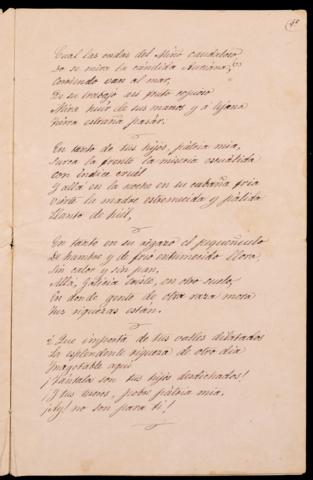 Cual las ondas del Miño caudaloso
Do se mira la cándida Auriana, (1)
Corriendo van al mar,
De su trabajo así fruto copioso
Mira huir de sus manos y á lejana
tierra estraña pasár.
En tanto de tus hijos, pátria mia,
Surca la frente la miseria escuálida
con índice cruél
Y allá en la noche en su cabaña fria
vierte la madre estremecida y pálida
llanto de hiel,
En tanto en su regazo el pequeñuelo
de hambre y de frio entumecido llora,
Sin calor y sin pan,
Allá, Galicia triste, en otro suelo,
En donde gente de otra raza mora
tus riquezas están.
¿Que importa de tus valles dilatados
La esplendente riqueza de otro dia
Inagotable aquí
¡Tántalos son tus hijos desdichados!
¡Y tus mieses, pobre pátria mia,
¡Ay! no son para tí!